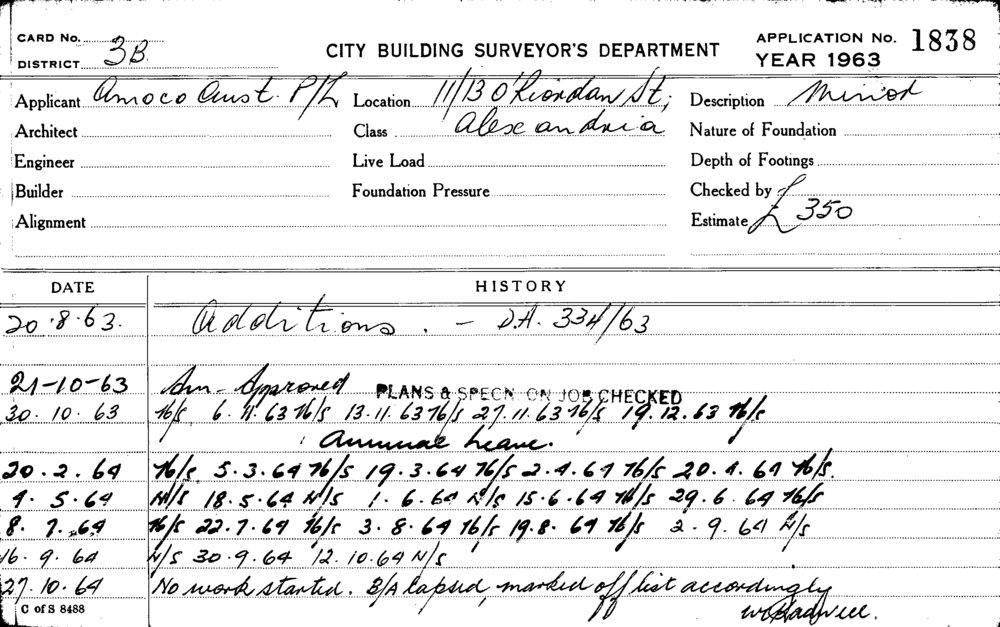 CARD No. CITY BUILDING SURVEYOR'S DEPARTMENT APPLICATION No. 1838
DISTRICT 3B YEAR 1963
Applicant Amoco Aust. P/L Location 11/13 O'Riordan St, Description Minor
Architect Class Alexandria Nature of Foundation
Engineer Live Load Depth of Footings
Builder Foundation Pressure Checked by
Alignment Estimate £350
DATE HISTORY
20.8.63. Additions. - D.A. 334/63
21-10-63 Am- Approved PLANS & SPECN ON JOB CHECKED
30.10.63 N/S 6.11.63 N/S 13.11.63 N/S 27.11.63 N/S 19.12.63 N/S
Annual Leave.
20.2.64 N/S 5.3.64 N/S 19.3.64 N/S 2.4.64 N/S 20.4.64 N/S.
4.5.64 N/S 18.5.64 N/S 1.6.64 N/S 15.6.64 N/S 29.6.64 N/S
8.7.64 N/S 22.7.64 N/S 3.8.64 N/S 19.8.64 N/S 2.9.64 N/S
16.9.64 N/S 30.9.64 12.10.64 N/S
27.10.64 No work started. B/A lapsed, marked off list accordingly
C of S 8488